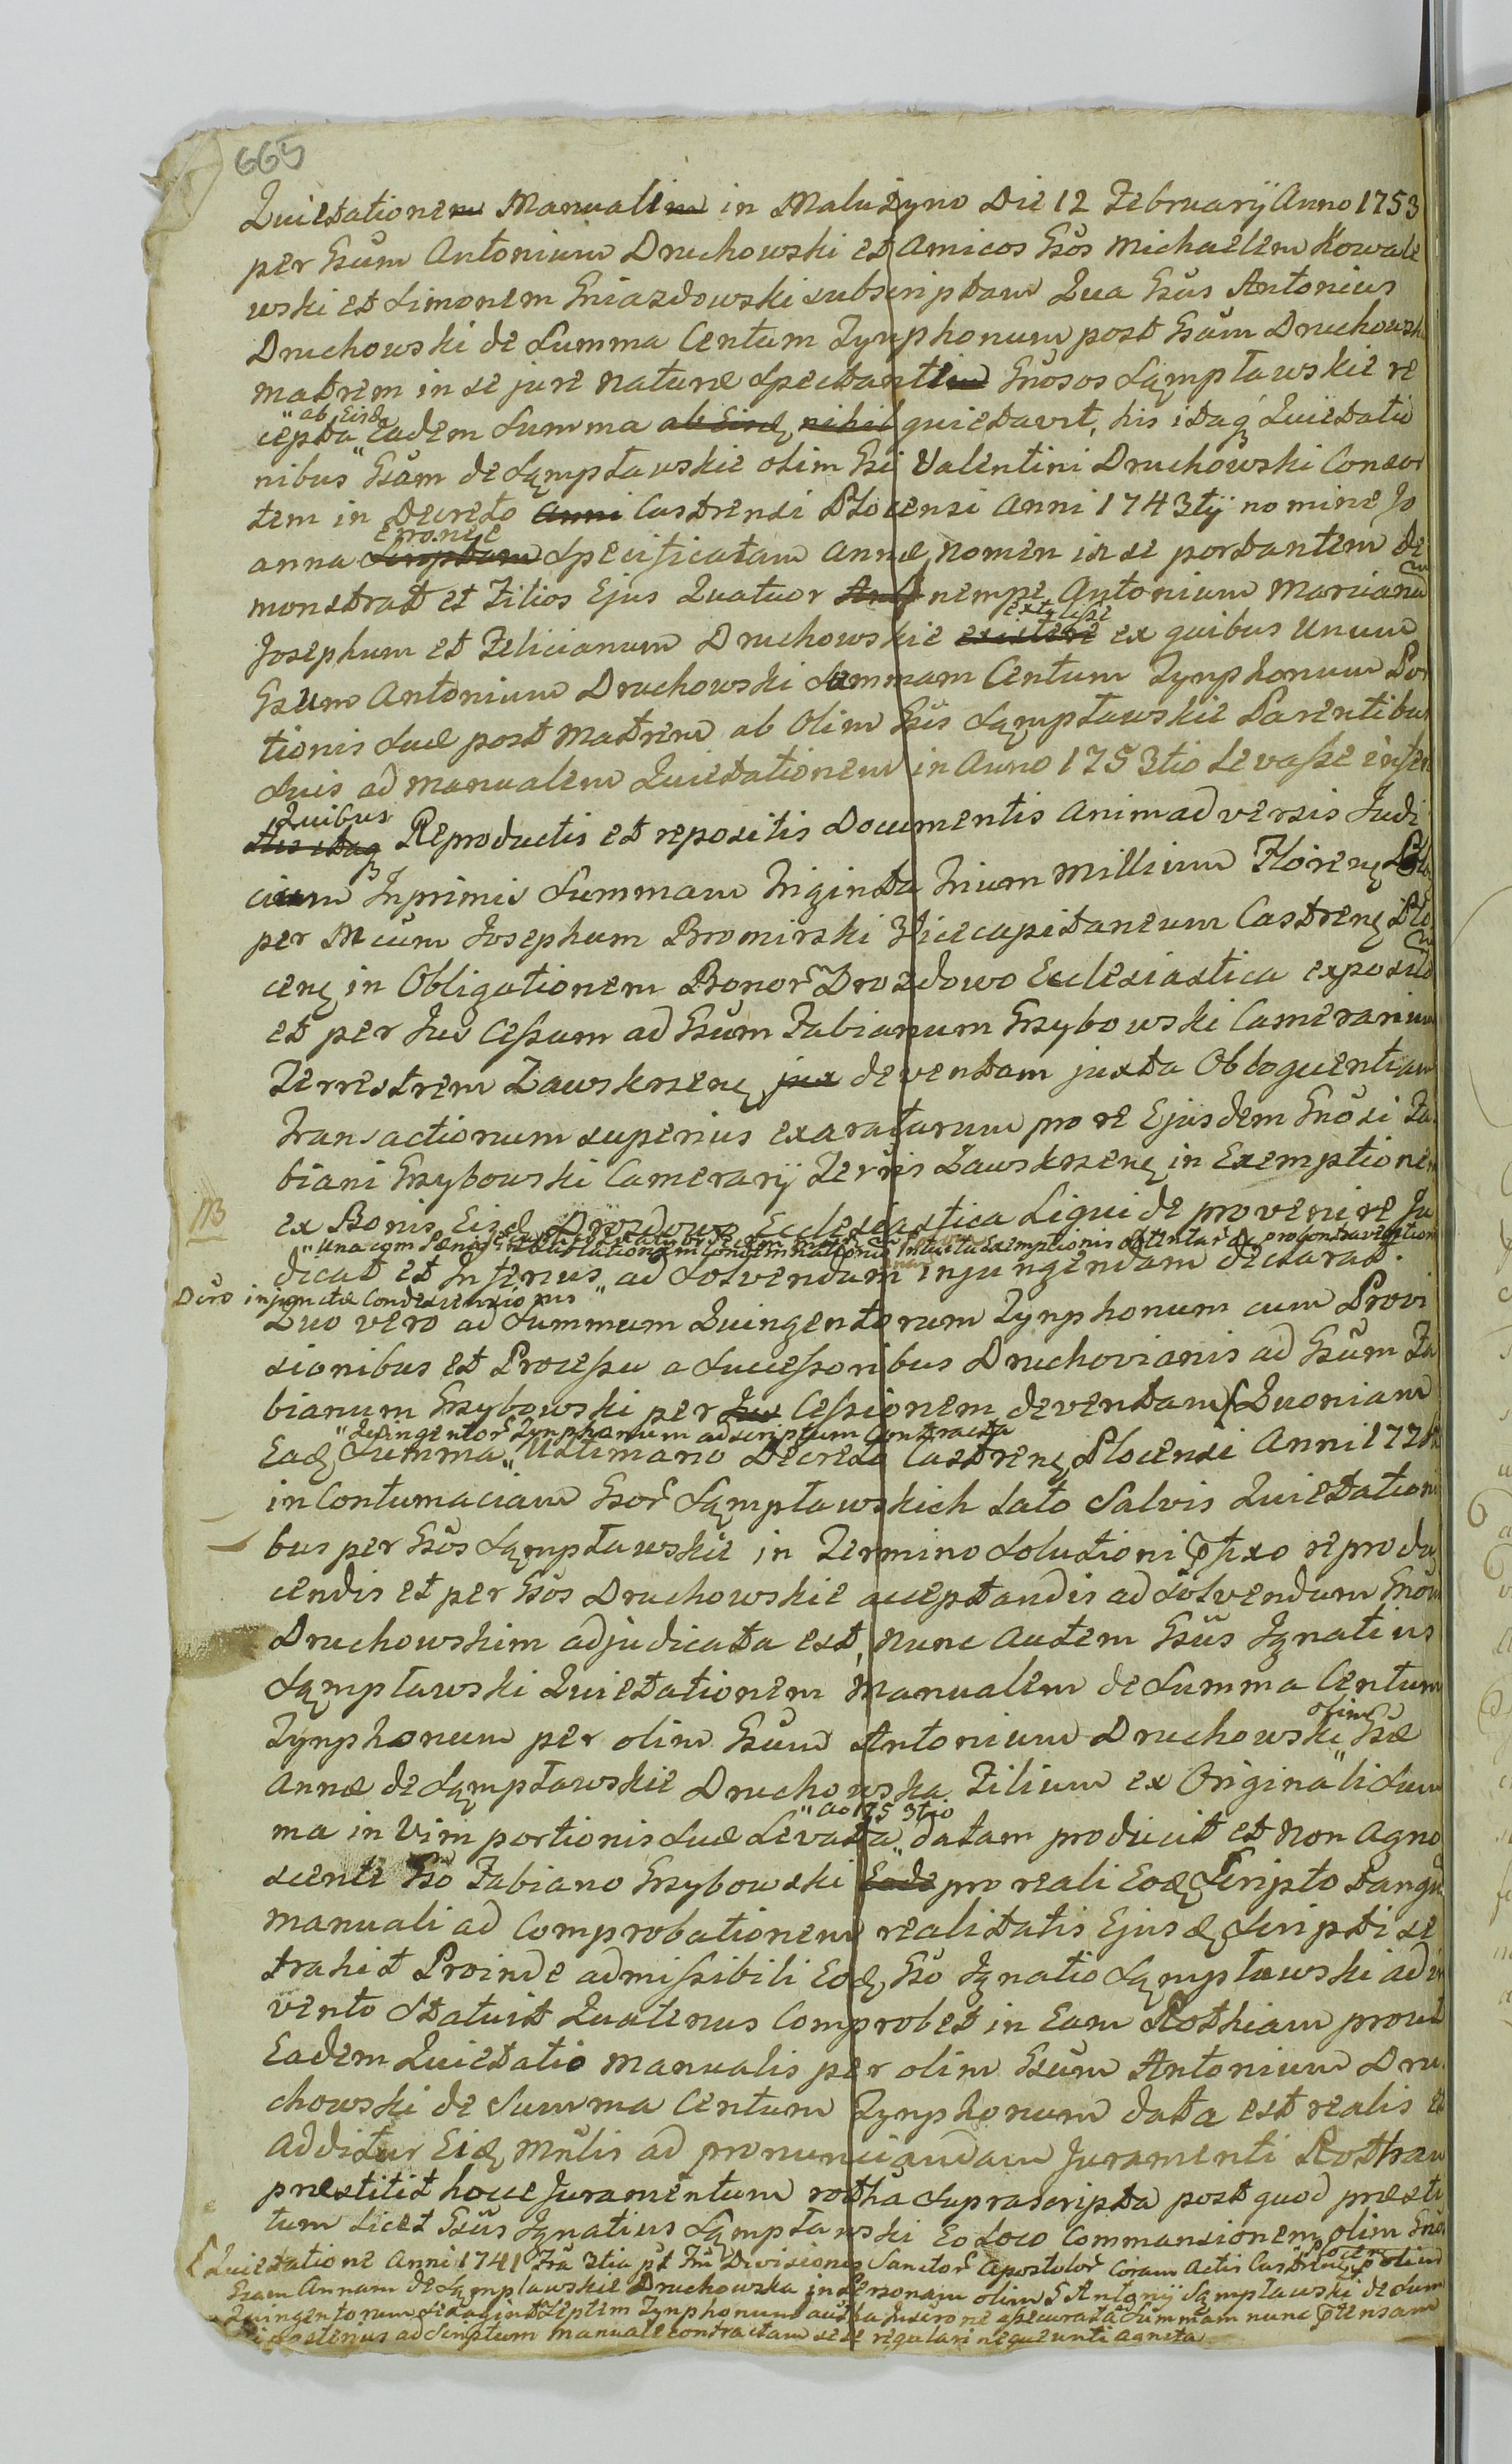 665
Quietationem Manualem in Malużyno Die 12 Februarÿ Anno 1753
per Gsum Antonium Druchowski et Amicos Gsos Michaelem Kowale
wski et Simonem Gniazdowski subscriptam Qua Gsus Antonius
Druchowski de Summa Centum Tynphonum post Gsam Druchowsk
matrem in se jure naturæ Spectantem Gnosos Sąmpławskie re
"ab Eisd
cepta" Eadem Summa ab Eisd nihil quietavit, his itaq Quietatio
nibus Gsam de Sąmpławskie olim Gsi Valentini Druchowski Consor
tem in Decreto Anni Castrensi Plocensi Anni 1743tÿ nomine Jo
erronee
anna Scriptam Specificatam Annæ nomen in se portantem de
monstrat et Filios Ejus Quatuor nempe Antonium Marcianu
extitisse
Josephum et Felicianum Druchowskie existere ex quibus Unum
Gsum Antonium Druchowski Summam Centum Tynphonum Por
tionis Suæ post Matrem ab Olim Gsis Sąmpławskie Parentibus
Suis ad manualem Quietationem in Anno 1753tio Levasse
Quibus
His itaq Reproductis et repositis Documentis animadversis Judi
cium Inprimis Summam Triginta Trium Millium Floren Polo
per Mcum Josephum Bromirski Vicecapitaneum Castren Plo
cen in Obligationem Bonor Drozdowo Ecclesiastica exposita
et per Jus Cessum ad Gsum Fabianum Grzybowski Camerarium
Terrestrem Zawskrzen jux deventam juxta Obloquentiam
Transactionum superius exaratarum pro re Ejusdem Gnosi Fa
biani Grzybowski Camerarÿ Terris Zawskrzen in Exemptionem
NB
ex Bonis Eisd Drozdowo Ecclesiastica Liquide provenire Ju
"Una cum Condemnationis Intuitu Exemptionis obtentar ac pro contraventione
dicat et Inferius ad Solvendum injungendam declarat.
Dero injunctæ Condescensionis"
Quo vero ad Summam Quingentorum Tynphonum cum Provi
sionibus et Processu a Successoribus Druchovianis ad Gsum Fa
bianum Grzybowski per Jus Cessionem deventam Quoniam
"Quingentor Tynphonum ad scriptum Contracta
Ead Summa" Ultimario Decreto Castren Plocensi Anni
in Contumaciam Gsor Sąmpławskich Lato Salvis Quietationi
bus per Gsos Sąmpławskie in Termino Solutioni pfixo reprodu
cendis et per Gsos Druchowskie acceptandis ad Solvendum Gnosis
Druchowskim adjudicata est, nunc autem Gsus Ignatius
Sąmpławski Quietationem Manualem de Summa Centum
olim
Tynphonum per olim Gsum Antonium Druchowski" Gsæ
Annæ de Sąmpławskie Druchowska Filium ex Originali Sum
"Ao 1753tio
ma in Vim portionis Suæ Levata" datam producit et non agno
scente Gso Fabiano Grzybowski Eode pro reali Eod Scripto tanqu
manuali ad Comprobationem realitatis Ejusd Scripti se
trahit Proinde admissibili Eod Gso Ignatio Sąmpławski ad
vento Statuit Quatenus Comprobet in Eam Rotham prout
Eadem Quietatio Manualis per olim Gsum Antonium Dru
chowski de Summa Centum Tynphonum data est realis et
Additur Eid Mnlis ad pronunciandam Juramenti Rotham
præstitit hocce Juramentum rotha suprascripta post quod præsti
tum licet Gsus Ignatius Sąmpławski Eo Loco Commansionem olim Gnos
Quietatione Anni 1741 Fra 3tia pt Fm Divisionis Sanctor Apostolor Coram Actis Castren Plocen p olim
Gsam Annam de Sąmpławskie Druchowska in Personam olim G Antonÿ Sąmpławski de Sum
Quingentorum Septem Tynphonum Summam nunc ptensam
posterius ad Scriptum manuale contractam sese regulari nequeunti agnita